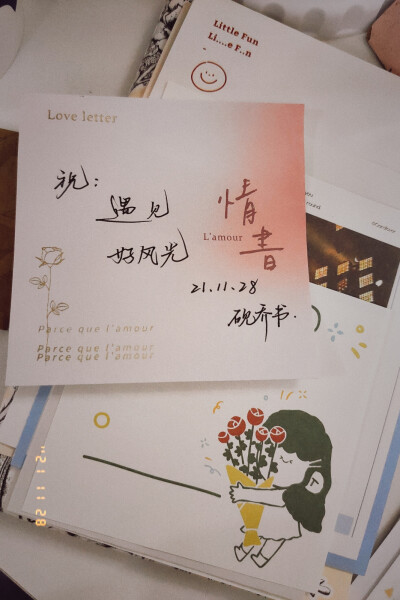 Little Fun
Li....e F..n
Love letter
祝：
遇见
好风光
情書
L'amour
21.11.28
砚乔书.
Parce que l'amour
Parce que l'amour
Parce que l'amour
'21 11 28